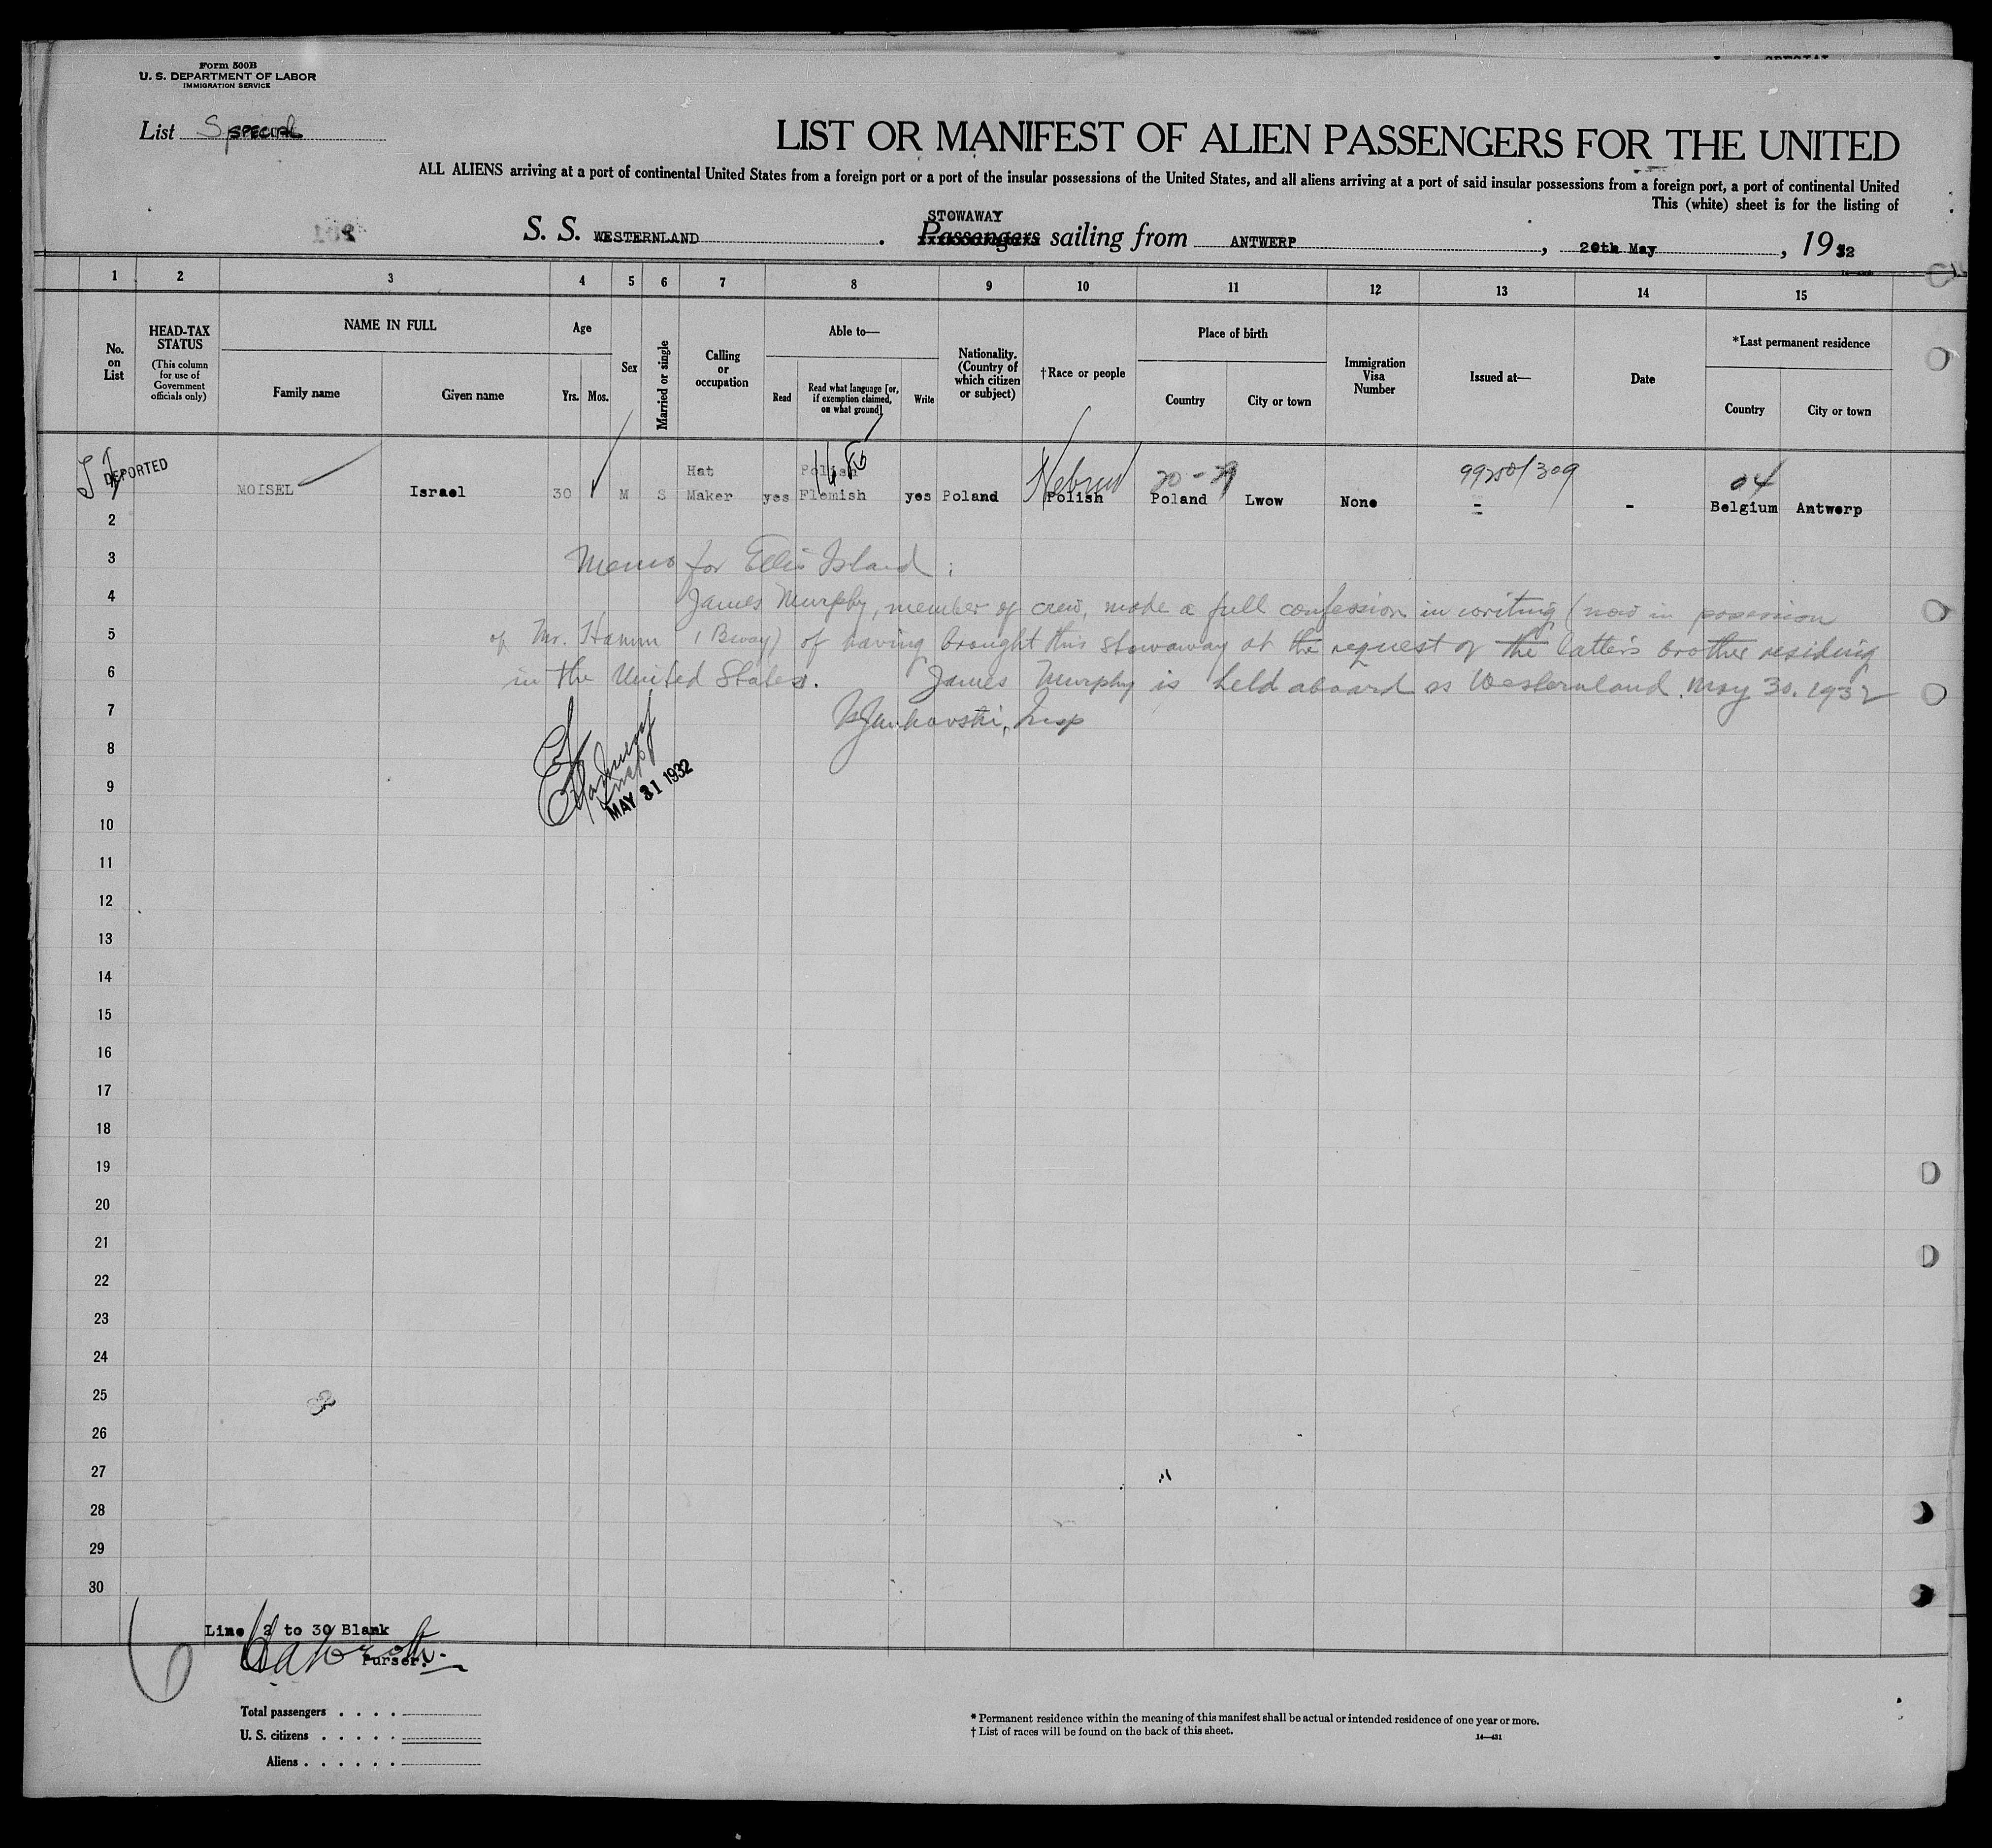 Form 500B
U. S. DEPARTMENT OF LABOR
IMMIGRATION SERVICE
List Special SPECIAL
LIST OR MANIFEST OF ALIEN PASSENGERS FOR THE UNITED
ALL ALIENS arriving at a port of continental United States from a foreign port or a port of the insular possessions of the United States, and all aliens arriving at a port of said insular possessions from a foreign port, a port of continental United
This (white) sheet is for the listing of
STOWAWAY
S. S. WESTERNLAND Passengers sailing from ANTWERP, 20th May, 1932
1 2 3 4 5 6 7 8 9 10 11 12 13 14 15
No. on List
HEAD-TAX STATUS
(This column for use of Government officials only)
NAME IN FULL
Family name
Given name
Age
Yrs.
Mos.
Sex
Married or single
Calling or occupation
Able to—
Read
Read what language [or, if exemption claimed, on what ground]
Write
Nationality. (Country of which citizen or subject)
†Race or people
Place of birth
Country
City or town
Immigration Visa Number
Issued at—
Date
*Last permanent residence
Country
City or town
DEPORTED
Hat Polish Hebrew 20-29 99258/309 04
MOISEL Israel 30 M S Maker yes Flemish yes Poland Polish Poland Lwow None - - Belgium Antwerp
2
3 Memo for Ellis Island:
4 James Murphy, member of crew, made a full confession in writing (now in posession
5 of Mr. Hamm 1 Bway) of having brought this stowaway at the request of the latter's brother residing
6 in the United States. James Murphy is held aboard ss Westernland. May 30. 1932
7 Insp
8
9 MAY 31 1932
10
11
12
13
14
15
16
17
18
19
20
21
22
23
24
25
26
27
28
29
30
Line 2 to 30 Blank
Purser.
Total passengers . . . .
U. S. citizens . . . . .
Aliens . . . . . .
* Permanent residence within the meaning of this manifest shall be actual or intended residence of one year or more.
† List of races will be found on the back of this sheet.
14—431